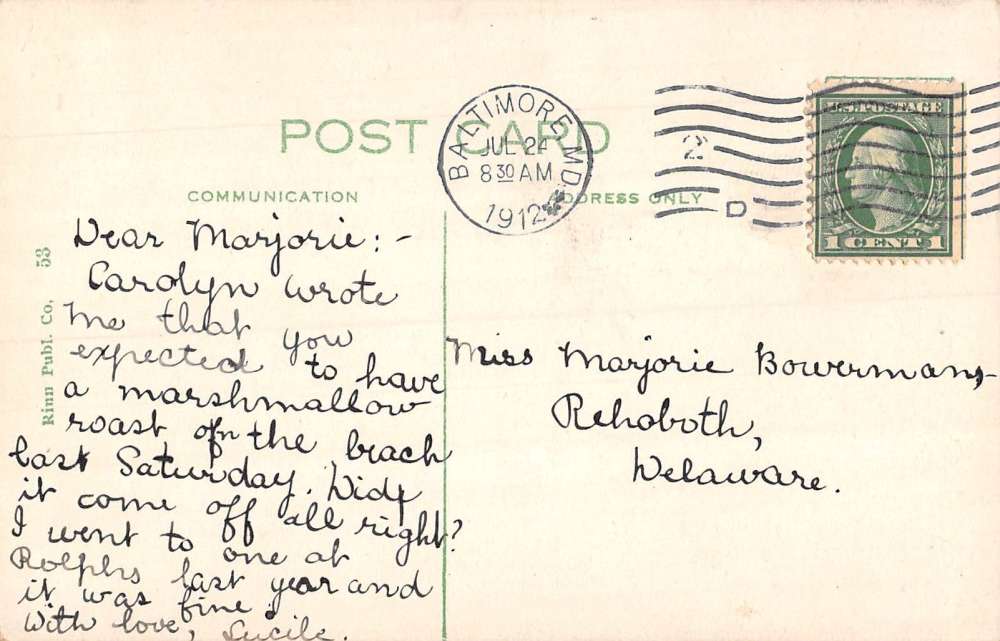 POST CARD
BALTIMORE, MD.
JUL 24
8 30 AM
1912
2
D
U.S. POSTAGE
1 CENT 1
COMMUNICATION
ADDRESS ONLY
Rinn Publ. Co, 53
Dear Marjorie:-
Carolyn wrote
me that you
expected to have
a marshmallow
roast on the beach
last Saturday. Did
it come off all right?
I went to one at
Rolphs last year and
it was fine.
With love, Lucile.
Miss Marjorie Bowerman,
Rehoboth,
Delaware.